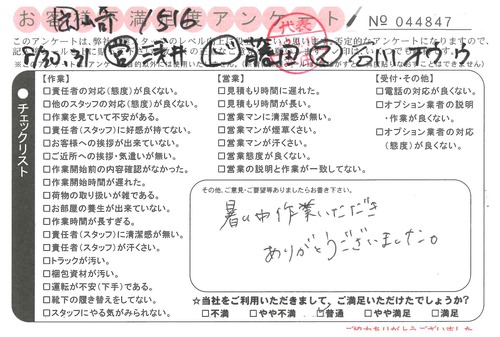 お客様不満足度アンケート
1516
No 044847
8/30.31
チェックリスト
【作業】
□責任者の対応(態度)が良くない。
□他のスタッフの対応(態度)が良くない。
□作業を見ていて不安がある。
□責任者(スタッフ)に好感が持てない。
□お客様への挨拶が出来ていない。
□ご近所への挨拶・気遣いが無い。
□作業開始前の内容確認がなかった。
□作業開始時間が遅れた。
□荷物の取り扱いが雑である。
□お部屋の養生が出来ていない。
□作業時間が長すぎる。
□責任者(スタッフ)に清潔感が無い。
□責任者(スタッフ)が汗くさい。
□トラックが汚い。
□梱包資材が汚い。
□運転が不安(下手)である。
□靴下の履き替えをしてない。
□スタッフにやる気がみられない。
【営業】
□見積もり時間に遅れた。
□見積もり時間が長い。
□営業マンに清潔感が無い。
□営業マンが煙草くさい。
□営業マンが汗くさい。
□営業態度が良くない。
□営業の説明と作業が一致してない。
【受付・その他】
□電話の対応が良くない。
□オプション業者の説明
・作業が良くない。
□オプション業者の対応
(態度)が良くない。
その他、ご意見・ご要望等ありましたらお書き下さい。
暑い中作業いただき
ありがとうございました。
☆当社をご利用いただきまして、ご満足いただけたでしょうか?
□不満 □やや不満 □普通 □やや満足 □満足
ご協力ありがとうございました